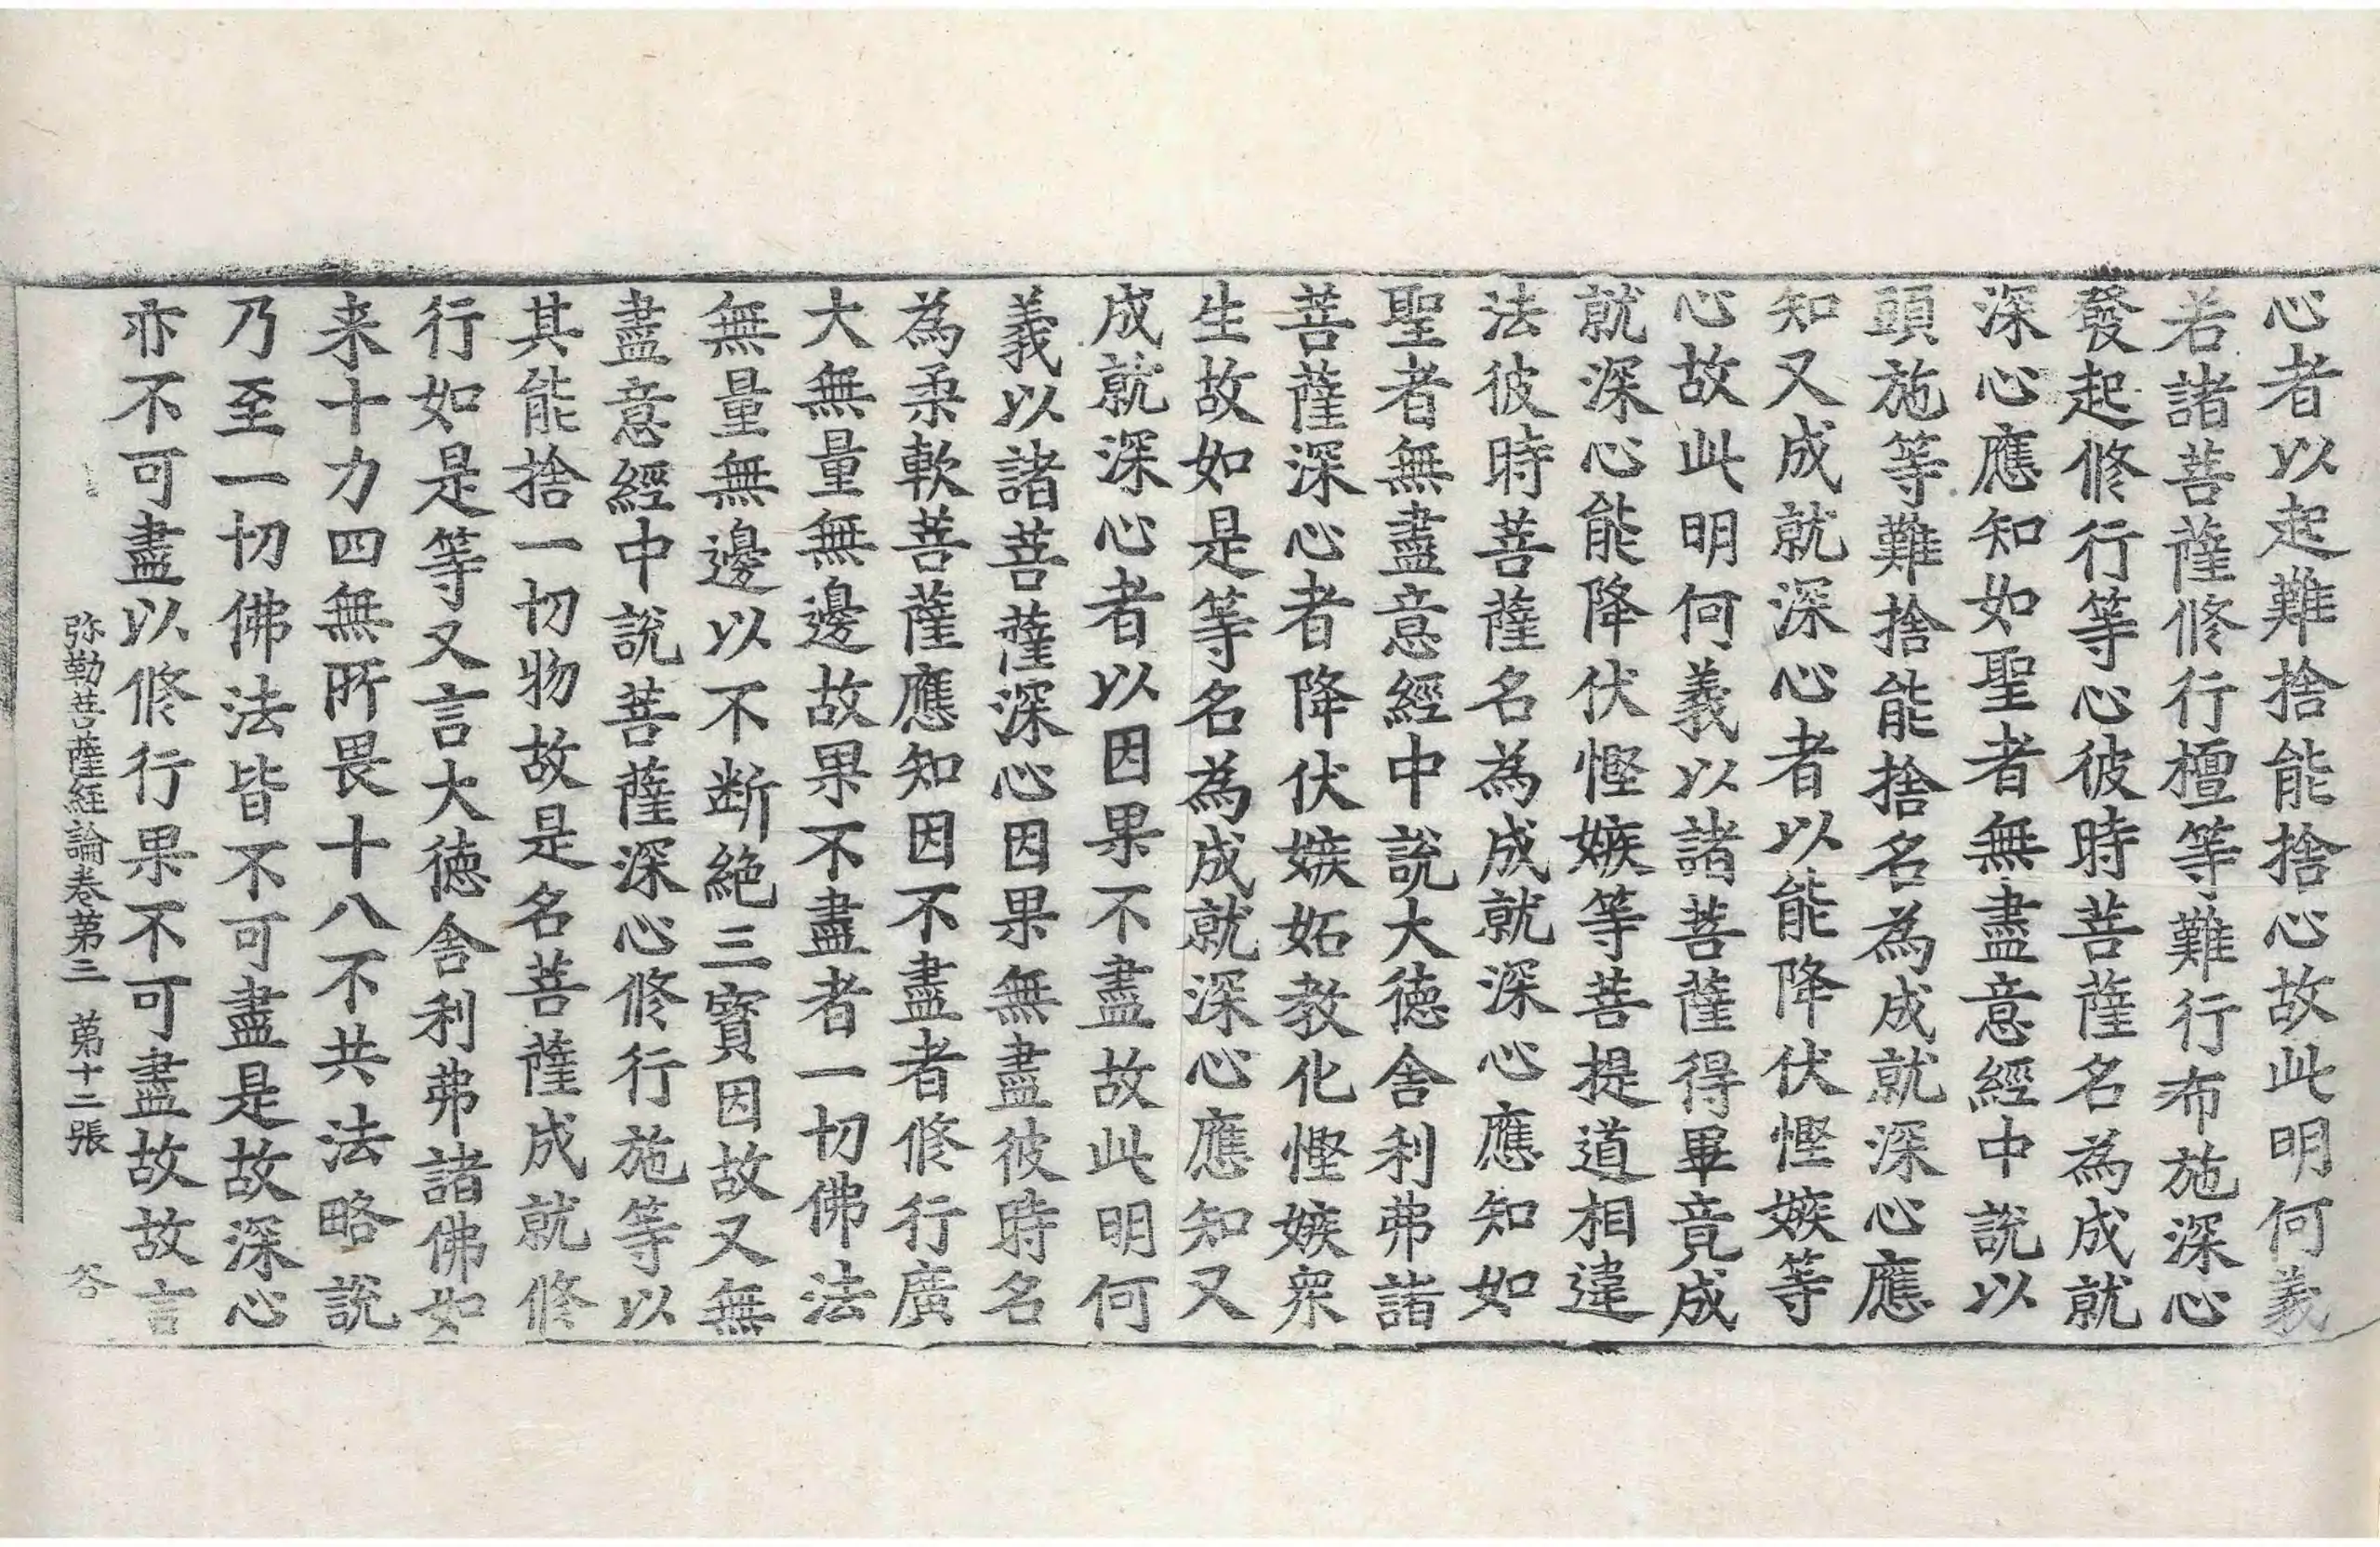 心者以起難捨能捨心故此明何義
若諸菩薩修行檀等難行布施深心
發起修行等心彼時菩薩名為成就
深心應知如聖者無盡意經中說以
頭施等難捨能捨名為成就深心應
知又成就深心者以能降伏慳嫉等
心故此明何義以諸菩薩得畢竟成
就深心能降伏慳嫉等菩提道相違
法彼時菩薩名為成就深心應知如
聖者無盡意經中說大德舍利弗諸
菩薩深心者降伏嫉妬教化慳嫉衆
生故如是等名為成就深心應知又
成就深心者以因果不盡故此明何
義以諸菩薩深心因果無盡彼時名
為柔軟菩薩應知因不盡者修行廣
大無量無邊故果不盡者一切佛法
無量無邊以不断絶三寶因故又無
盡意經中說菩薩深心修行施等以
其能捨一切物故是名菩薩成就修
行如是等又言大德舍利弗諸佛如
来十力四無所畏十八不共法略說
乃至一切佛法皆不可盡是故深心
亦不可盡以修行果不可盡故故言
弥勒菩薩経論卷第三 第十二張 荅